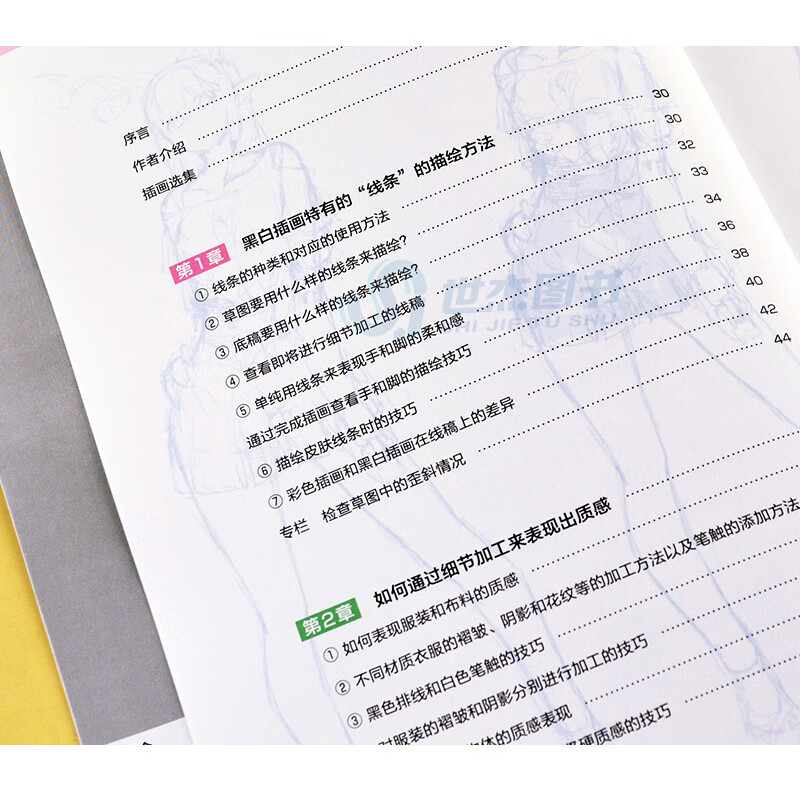 序言
作者介绍
插画选集
第1章 黑白插画特有的“线条”的描绘方法 30
① 线条的种类和对应的使用方法 30
② 草图要用什么样的线条来描绘? 32
③ 底稿要用什么样的线条来描绘? 33
④ 查看即将进行细节加工的线稿 34
⑤ 单纯用线条来表现手和脚的柔和感 36
通过完成插画查看手和脚的描绘技巧 38
⑥ 描绘皮肤线条时的技巧 40
⑦ 彩色插画和黑白插画在线稿上的差异 42
专栏 检查草图中的歪斜情况 44
第2章 如何通过细节加工来表现出质感
① 如何表现服装和布料的质感
② 不同材质衣服的褶皱、阴影和花纹等的加工方法以及笔触的添加方法
③ 黑色排线和白色笔触的技巧
对服装的褶皱和阴影分别进行加工的技巧
体的质感表现
硬质感的技巧
世杰图书
SHI JIE TU SHU